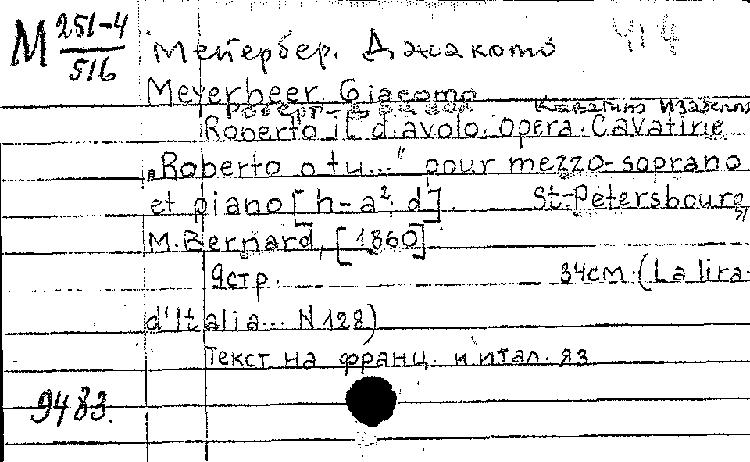 М 251-4/516 Мейербер. Джакомо 414
Meyerbeer Giacomo
Роберт-Дьявол Каватина Изабеллы
Roberto il diavolo. Opera. Cavatine
„Roberto o tu...“ pour mezzo-soprano
et piano [h-a² d]. St-Petersbourg,
M. Bernard, [1860]
9стр. 34см. (La lira
d'Italia... N 128)
Текст на франц. и итал. яз.
9483.